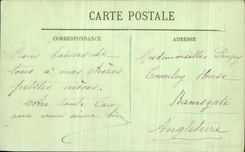 CARTE POSTALE
CORRESPONDANCE
ADRESSE
Bons baisers de
tous à mes chères
petites nièces.
votre tante
qui vous aime bien
Mesdemoiselles
House
Ramsgate
Angleterre